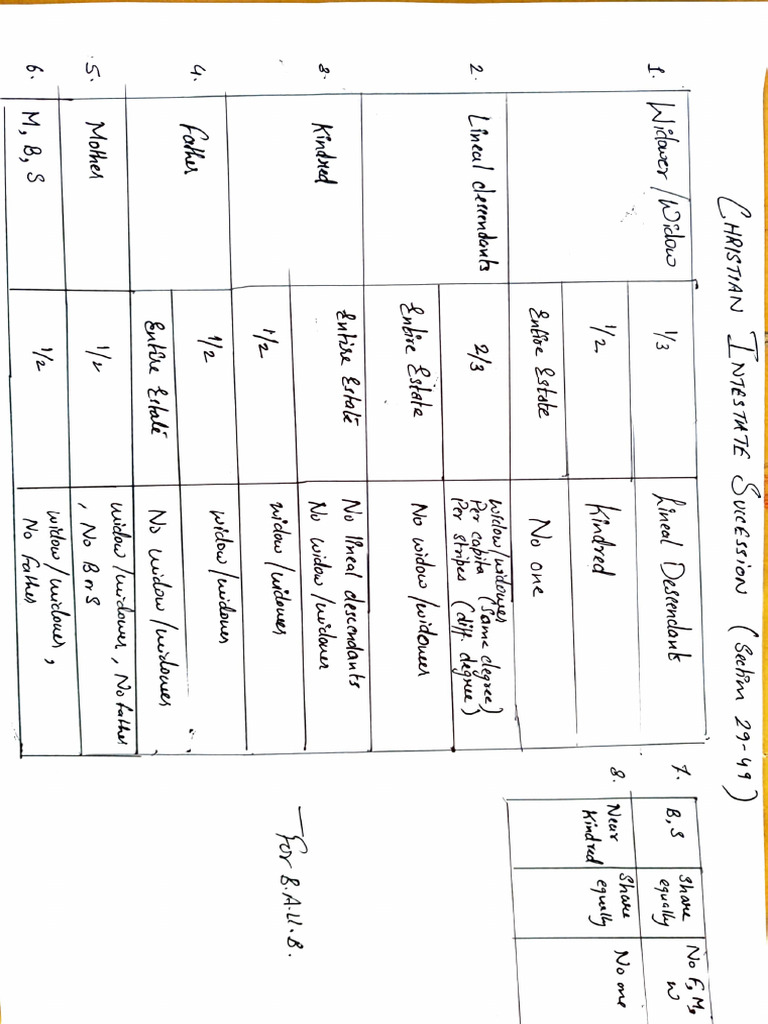 CHRISTIAN INTESTATE SUCESSION (Section 29-49)
1. Widower/Widow 1/3 Lineal Descendants
1/2. Kindred
Entire Estate No one
2. Lineal descendants 2/3 widow/widower
Per capita (Same degree)
Per stripes (diff. degree)
Entire Estate No widow/widower
3. Kindred Entire Estate No lineal descendants
No widow/widower
1/2 widow/widower
4. Father 1/2 widow/widower
Entire Estate No widow/widower
5. Mother 1/2 widow/widower, No father
, No B or S
6. M, B, S 1/2 widow/widower,
No father
7. B, S Share
equally No F, M,
W
8. Near
Kindred Share
equally No one
— For B.A.LL.B.